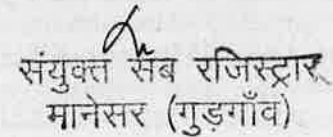 संयुक्त सब रजिस्ट्रार
मानेसर (गुड़गाँव)